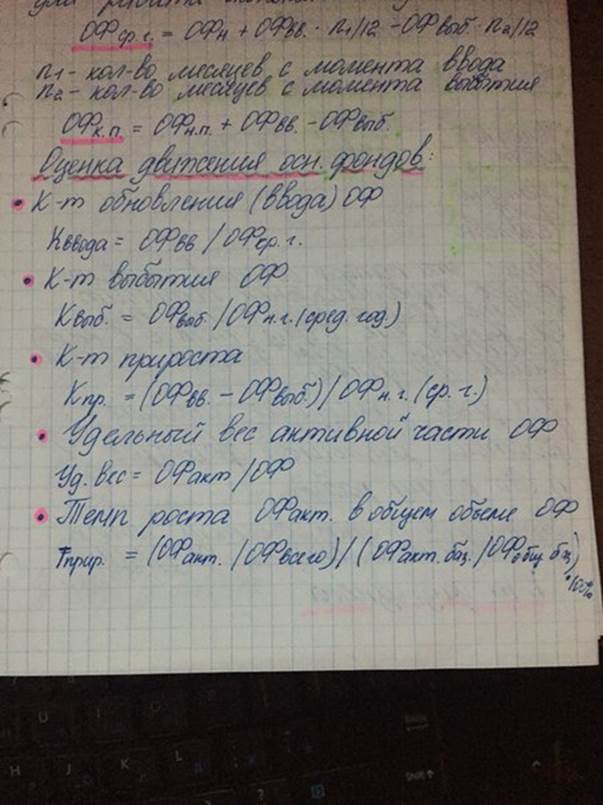 ОФср.г. = ОФн + ОФвв. · n1/12 - ОФвыб. · n2/12
n1 - кол-во месяцев с момента ввода
n2 - кол-во месяцев с момента выбытия
ОФк.п. = ОФн.п. + ОФвв. - ОФвыб.
Оценка движения осн. фондов:
• К-т обновления (ввода) ОФ
Kввода = ОФвв / ОФср.г.
• К-т выбытия ОФ
Kвыб. = ОФвыб. / ОФн.г. (сред. год.)
• К-т прироста
Kпр. = (ОФвв. - ОФвыб.) / ОФн.г. (ср. г.)
• Удельный вес активной части ОФ
Уд. вес = ОФакт / ОФ
• Темп роста ОФакт. в общем объеме ОФ
Тприр. = (ОФакт. / ОФвсего) / (ОФакт. баз. / ОФобщ. баз)
· 100%